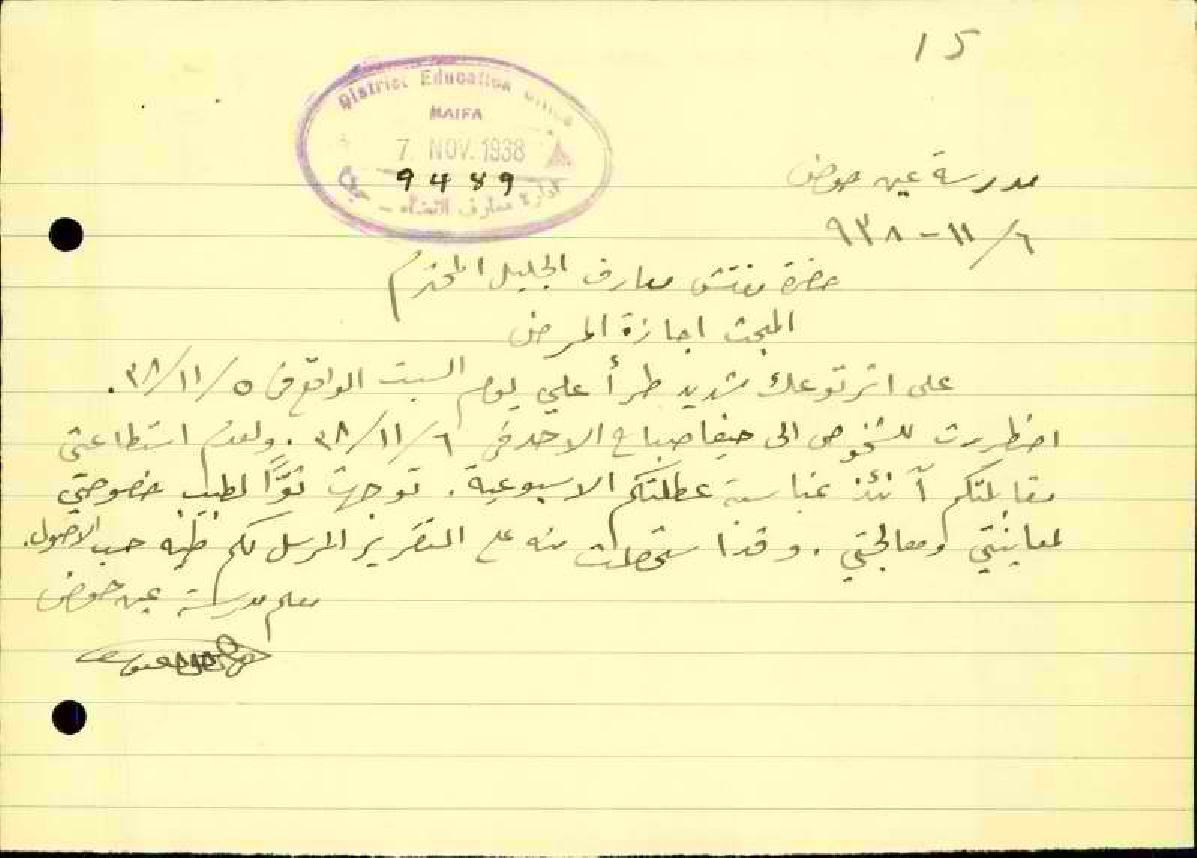 15
District Education Office
HAIFA
7 NOV. 1938
9489
ادارة معارف اللواء – حيفا
مدرسة عين حوض
٦/١١ - ٩٣٨
حضرة مفتش معارف الجليل المحترم
المبحث اجازة المرض
على اثر توعك شديد طرأ علي يوم السبت الواقع في ٥/١١/٣٨.
اضطررت للشخوص الى حيفا صباح الاحد في ٦/١١/٣٨. ولعدم استطاعتي
مقابلتكم آنئذ بمناسبة عطلتكم الاسبوعية. توجهت توًّا لطبيب خصوصي
لمعاينتي ومعالجتي. وقد استحصلت منه على التقرير المرسل لكم طيه حسب الاصول.
معلم مدرسة عين حوض